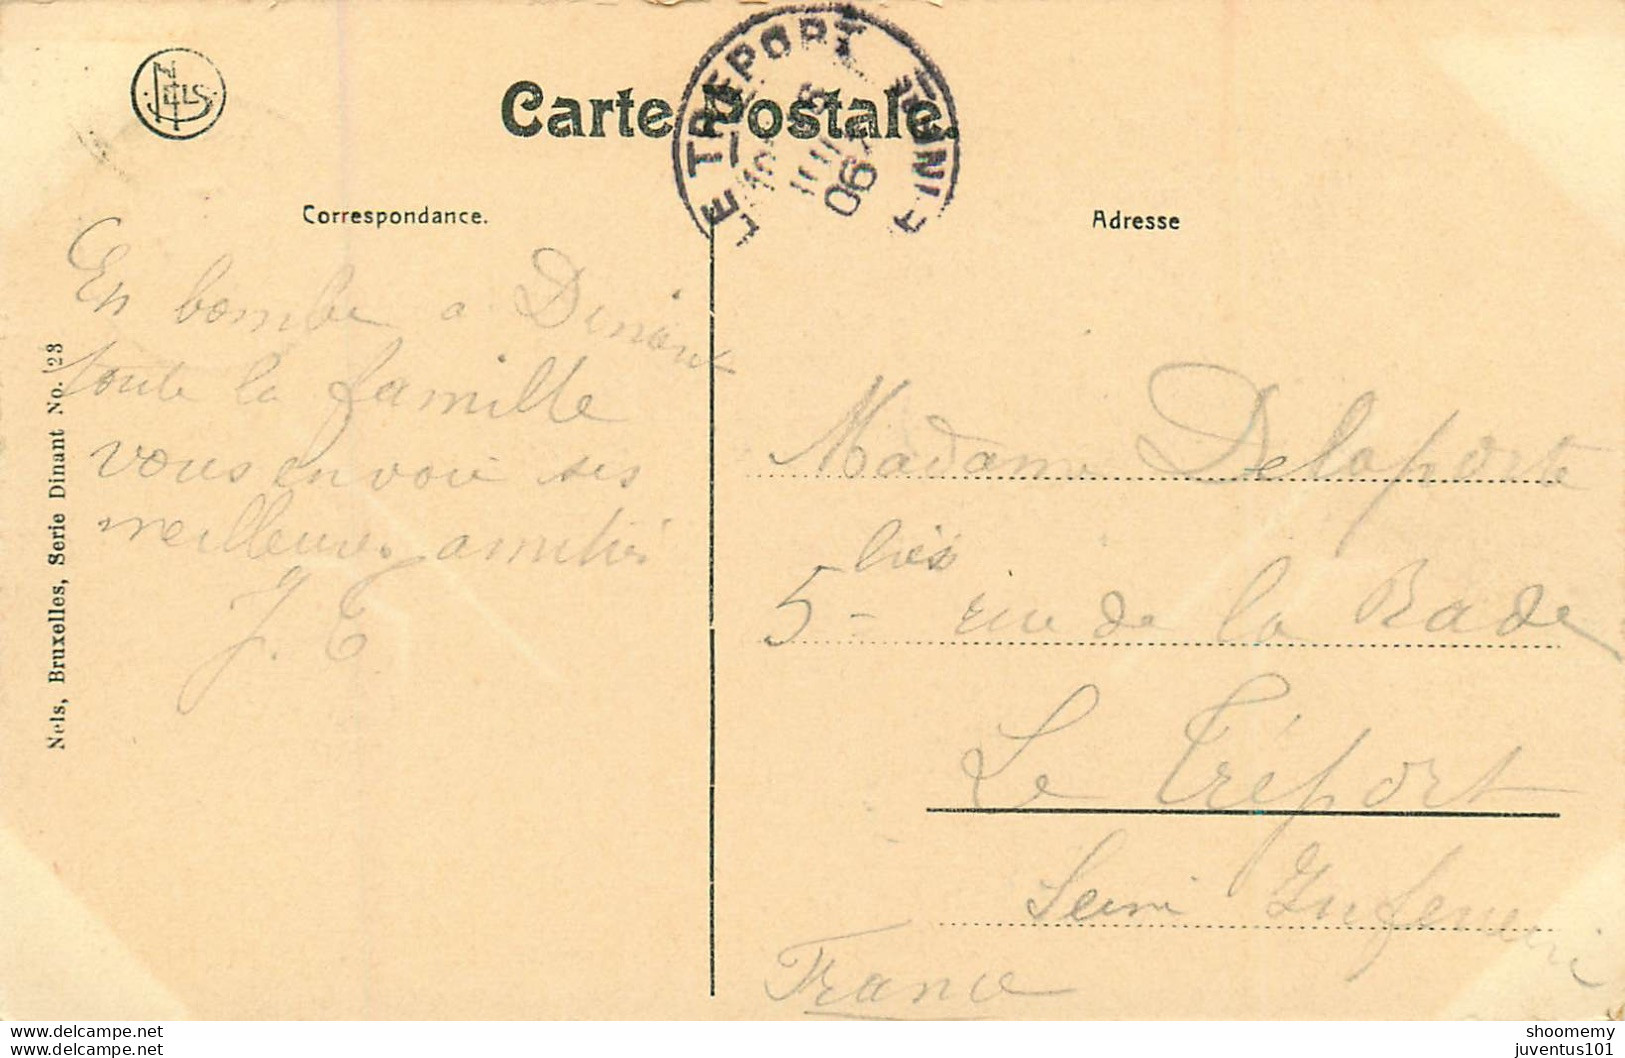 NELS
Carte Postale.
LE TREPORT
06
Correspondance.
Adresse
En bombe a Dinant
toute la famille
vous envoie ses
meilleures amitiés
J. E
Nels, Bruxelles, Serie Dinant No. 23
Madame Delaporte
5 bis rue de la Rade
Le Tréport
Seine Inferieure
France
www.delcampe.net
www.delcampe.net
shoomemy
juventus101